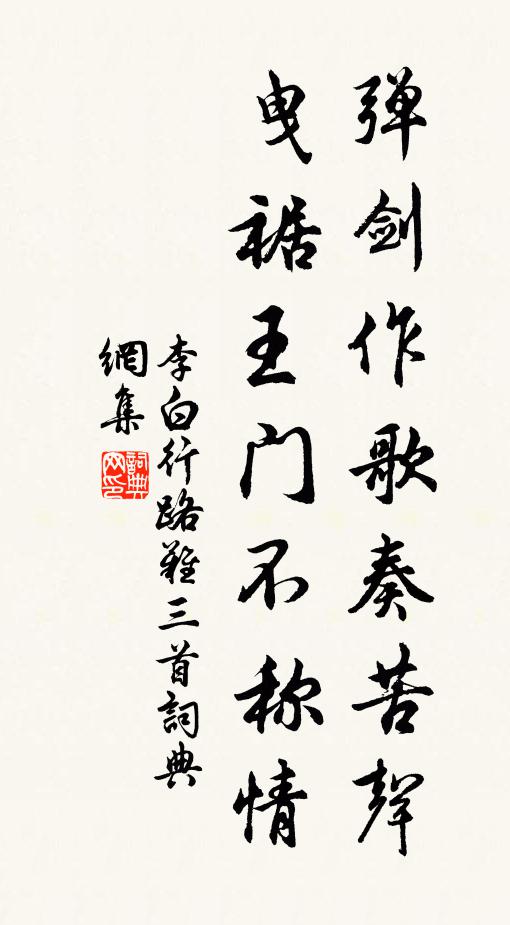 弹剑作歌奏苦声
曳裾王门不称情
李白行路难三首詞典
網集
詞典网印